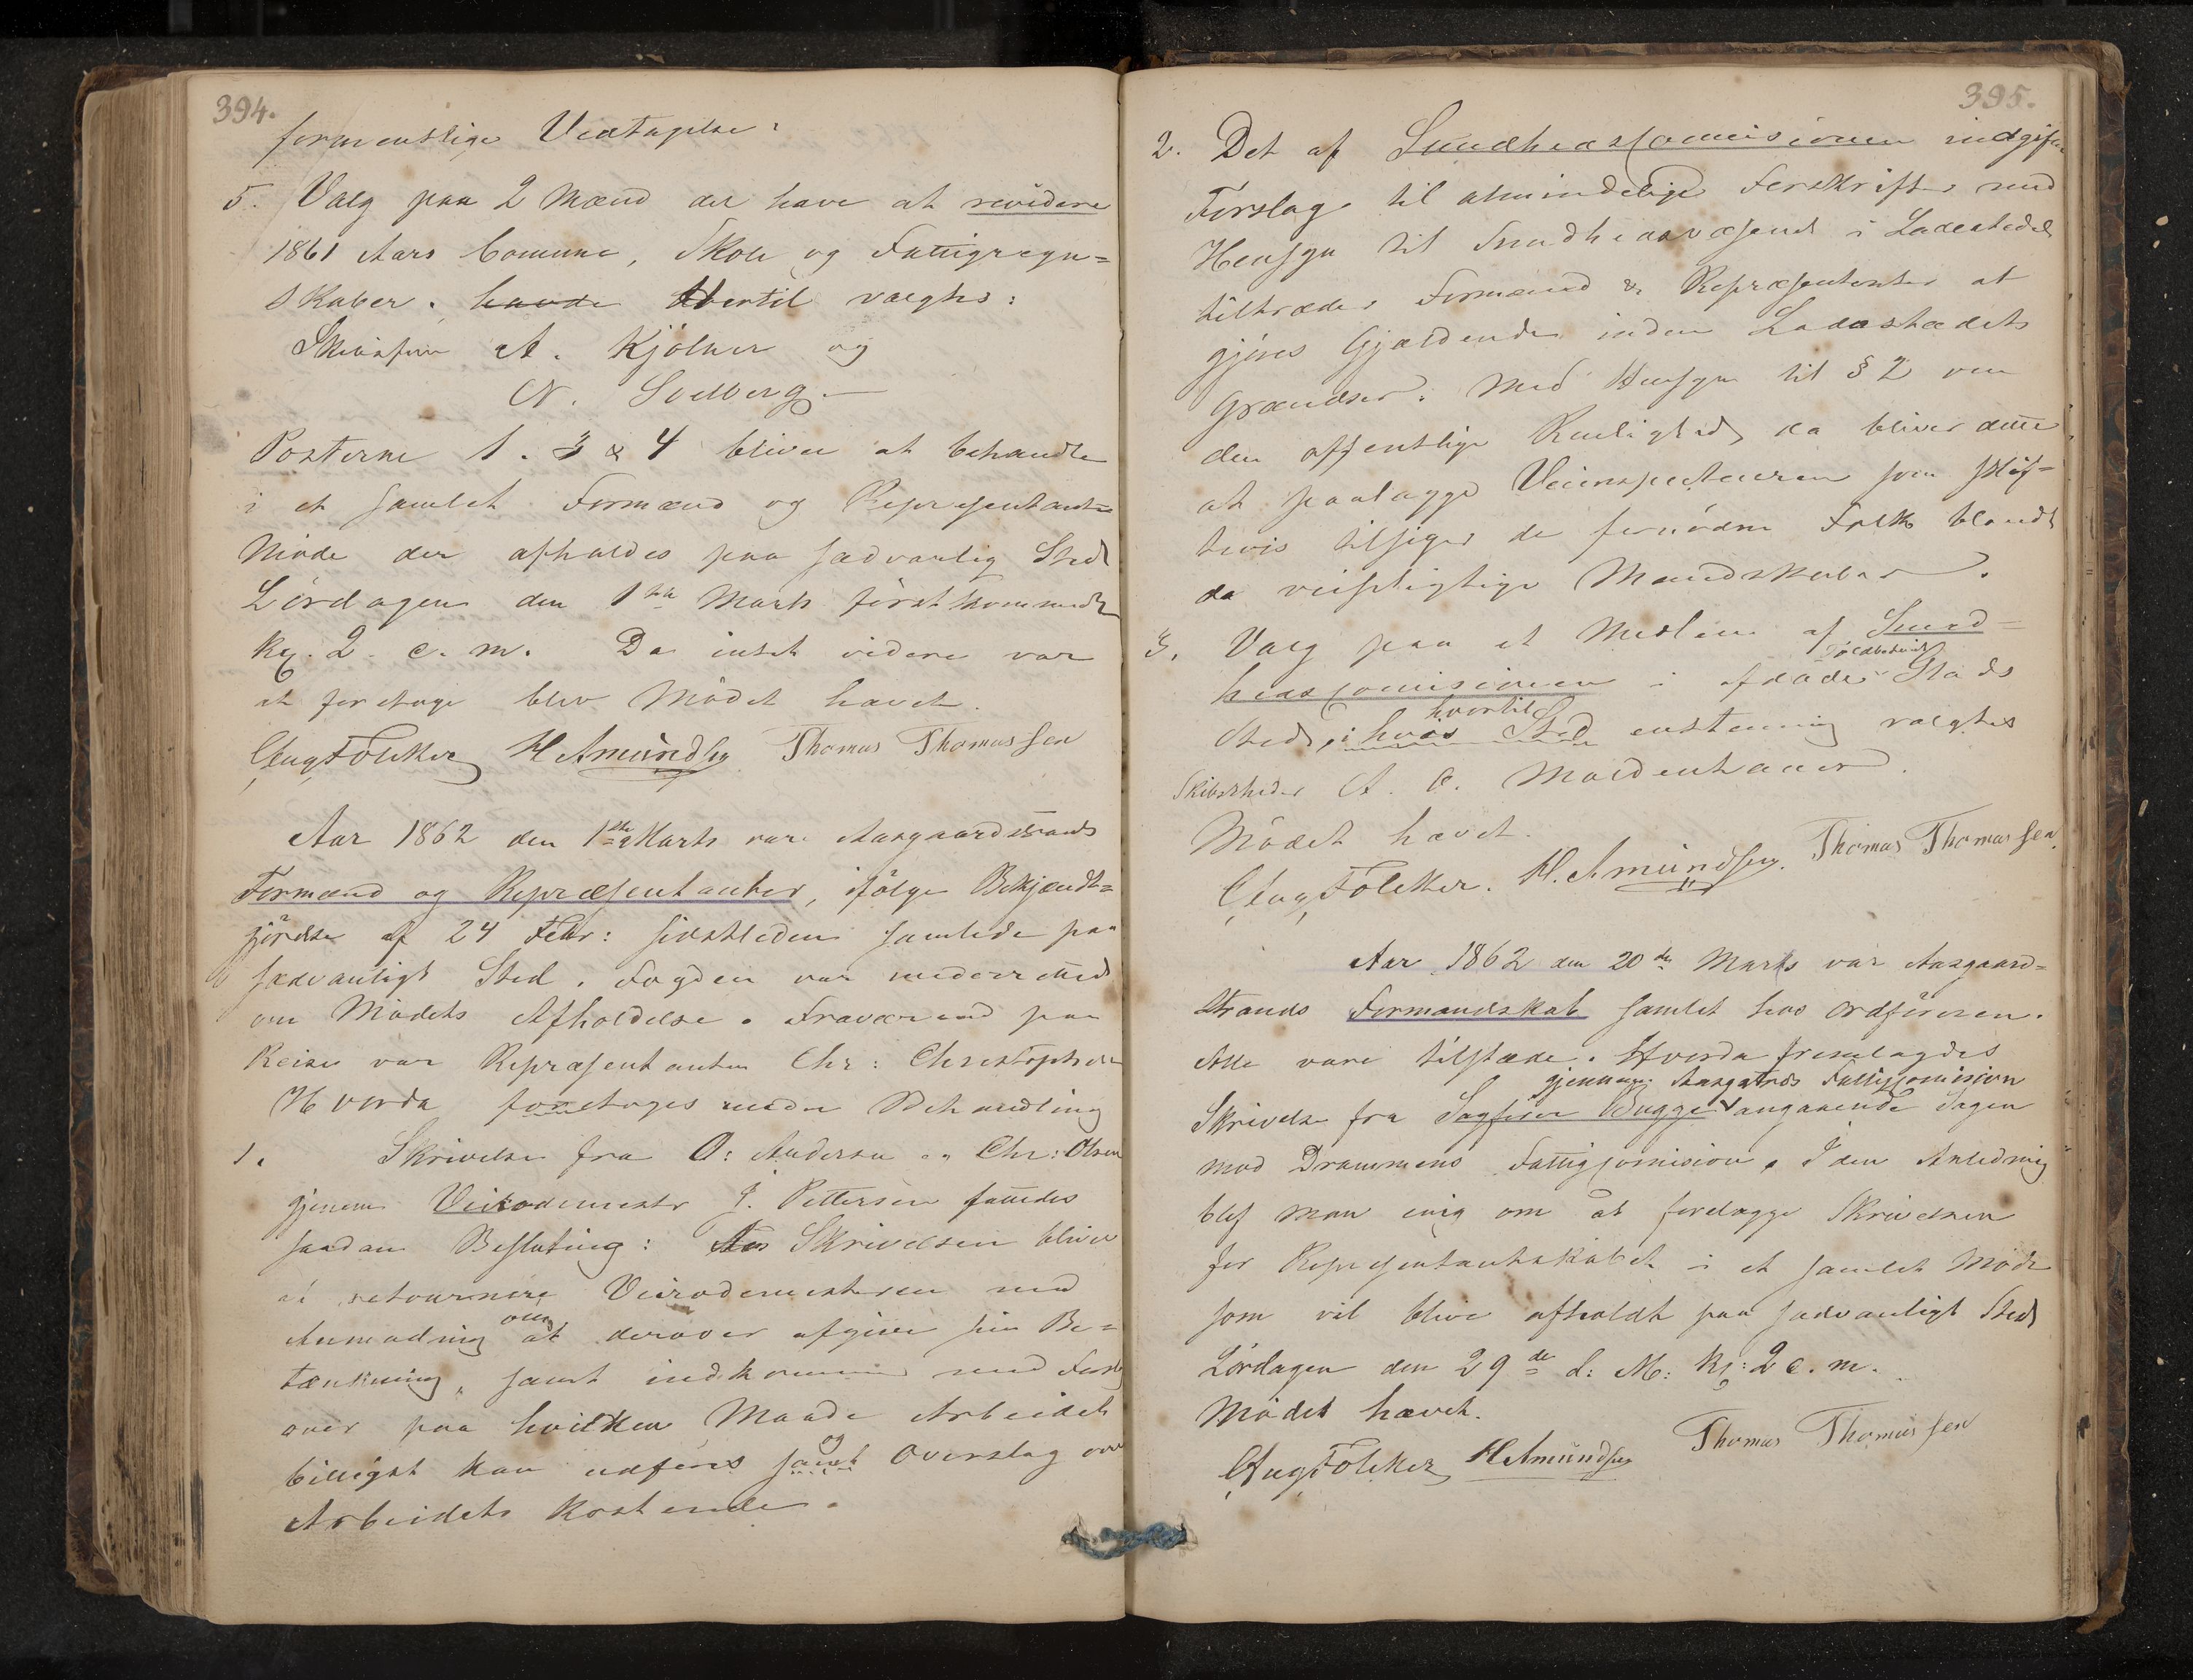 394.
formentlige Vedtagelse.
5. Valg paa 2 Mænd der have at revidere
1861 Aars Comune, Skole og Fattigregn=
skaber. havde Hvertil valgtes:
A. Kjölner og
N. Solberg.
Posterne 1. 3 & 4 bliver at behandle
i et samlet Formænd og Repræsentant
Möde der afholdes paa sædvanlig Sted
Lördagen den 1ste Marts förstkommende
Kl. 2 e. m. Da intet videre var
at foretage blev Mödet hævet.
Aug Fölcker H Amundsen Thomas Thomassen
Aar 1862 den 1ste Marts vare Aasgaardstrands
Formænd og Repræsentanter, ifölge Bekjendt=
gjörelse af 24 Febr: sidstleden samlede paa
sædvanligt Sted. Fogden var underrettet
om Mödets Afholdelse. Fraværend paa
Reise var Repræsentanten Chr: Christophersen
Hvorda foretoges under Behandling
1. Skrivelse fra O: Andersen og Chr: Olsen
gjenem Veirodemester J. Pettersen fattedes
saadan Beslutning: Skrivelsen bliver
at retournere Veirodemesteren med
Anmodning om at derover afgive sin Be=
tænkning, samt indkomme med Forslag
over paa hvilken Maade Arbeidet
billigst kan udföres samt og Overslag over
Arbeidets Kostende.
395.
2. Det af Sundhedscomissionen indgifne
Forslag til almindelige Forskrifter med
Hensyn til Sundhedsvæsenet i Ladestedet
tiltræder Formænd & Repræsentanter at
gjöres Gjældende inden Ladestædets
Grændser. Med Hensyn til § 2 om
den offentlige Renlighed, da bliver dette
at paalægge Veiinspecteuren som skif=
tevis tilsiger de fornödne Folk blandt
de veipligtige Mandskaber.
3. Valg paa et Medlem af Sund=
hedscomisionen i afdöde Stads
Sted, i hvis Sted hvortil enstemmig valgtes
Skibsrheder A. C. Moldenhauer.
Mödet hævet.
Aug Fölcker. H. Amundsen. Thomas Thomassen.
Aar 1862 den 20de Marts var Aasgaard=
strands Formandskab samlet hos Ordföreren.
Alle vare tilstæde. Hvorda fremlagdes
gjennem Aasgaards Fattigcomision
Skrivelse fra Sagförer Bugge angaaende Sagen
mod Drammens Fattigcomision. I den Anledning
blef man enig om at forelægge Skrivelsen
for Repræsentantskabet i et samlet Möde
som vil blive afholdt paa sædvanligt Sted
Lördagen den 29de d: M: Kl: 2 e. m.
Mödet hævet.
Aug Fölcker H Amundsen Thomas Thomassen